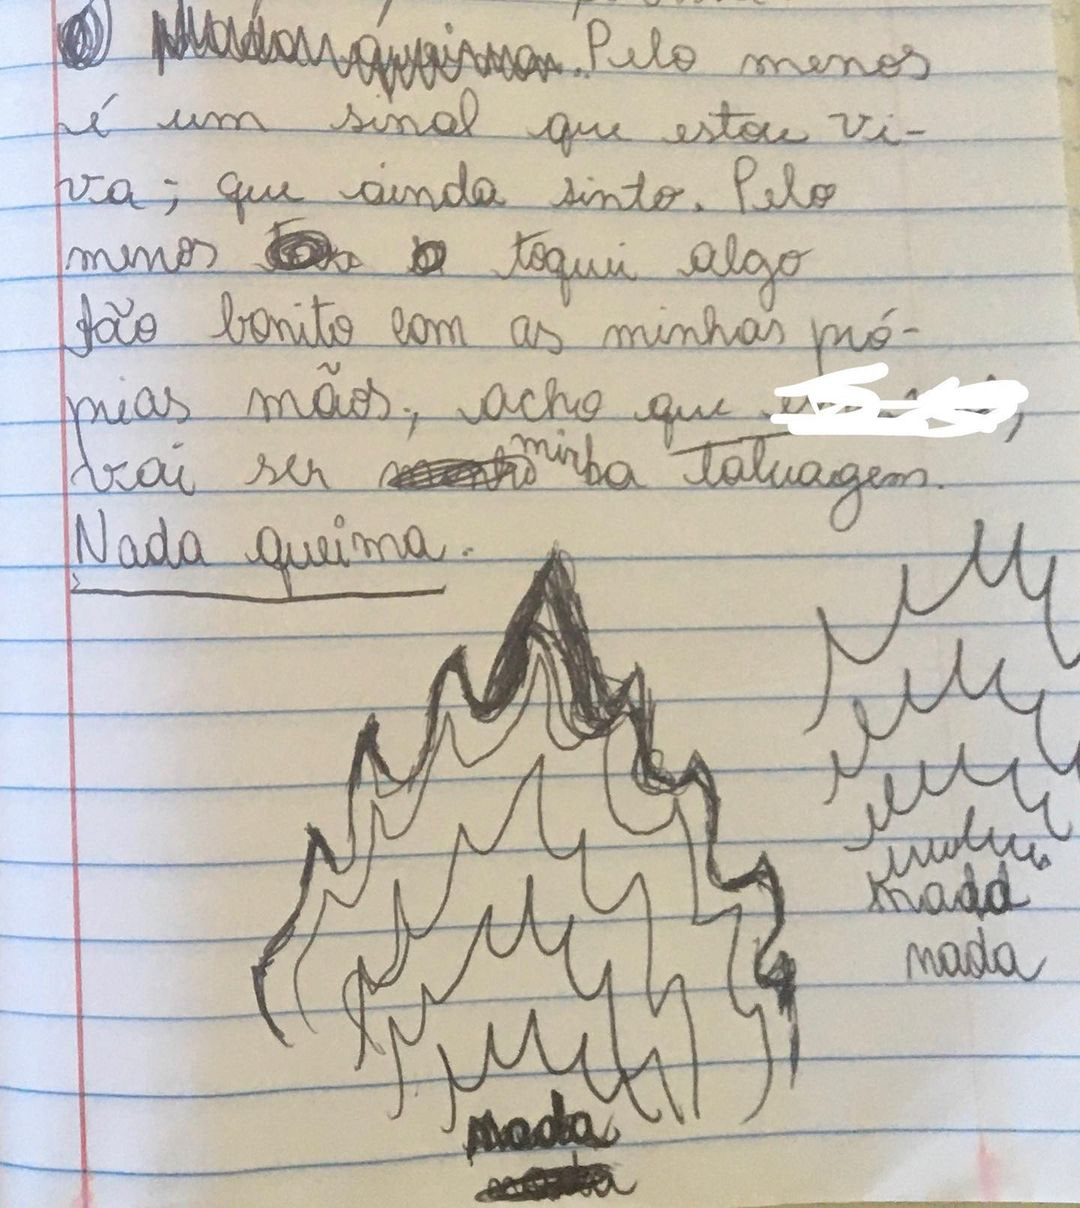 Pelo menos
é um sinal que estou vi-
va; que ainda sinto. Pelo
menos toquei algo
tão bonito com as minhas pró-
prias mãos, acho que
vai ser minha tatuagem.
Nada queima.
nada
nada
nada